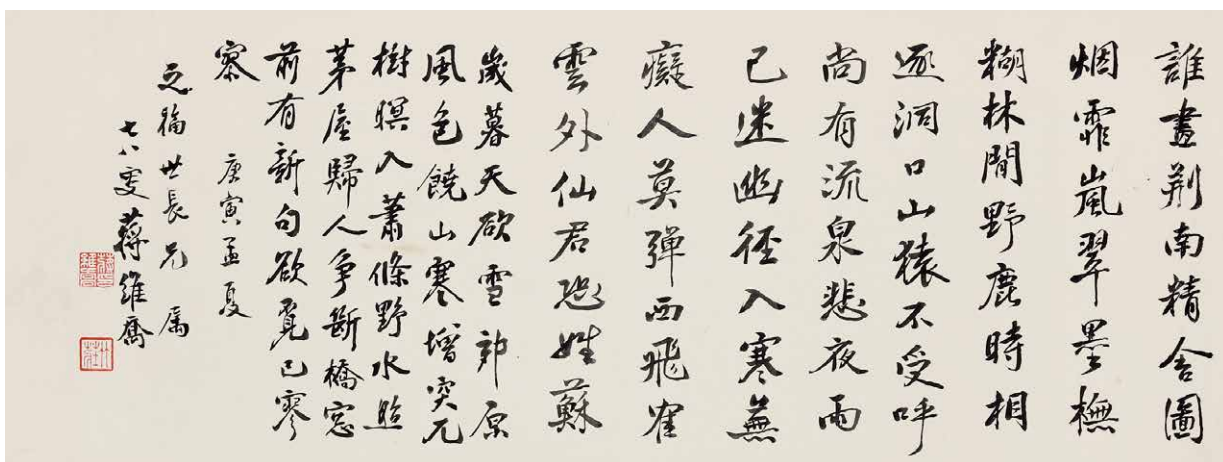 誰畫荆南精舍圖
烟霏嵐翠墨橅
糊林間野鹿時相
逐洞口山猿不受呼
尚有流泉悲夜雨
已迷幽徑入寒蕪
癡人莫彈西飛隺
雲外仙君恐姓蘇
歲暮天欲雪郊原
風色饒山寒增突兀
樹暝入蕭條野水照
茅屋歸人爭斷橋窓
前有新句欲覓已寥
寥 庚寅孟夏
世長兄属
七八叟蔣維喬
竹莊